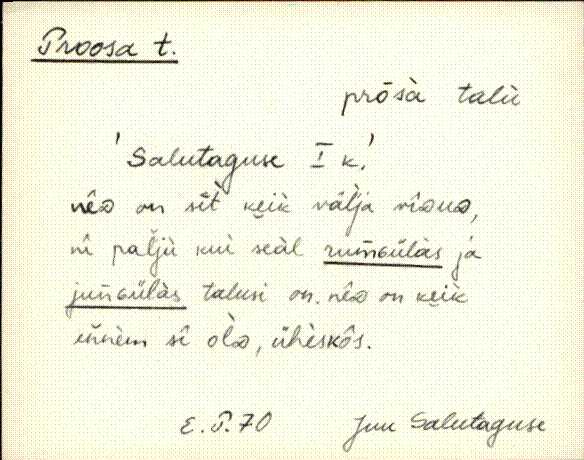 Proosa t.
prōsà talù
'Salutaguse I k.'
nêᴅ on sīt̀ keik̀ välja vîᴅuᴅ,
nî paljù kui seàl rumɢülàs ja
jumɢülàs talusi on. nêᴅ on keik̀
ennèm sî olᴅ̀, ühèskôs.
E. P. 70 Juu Salutaguse